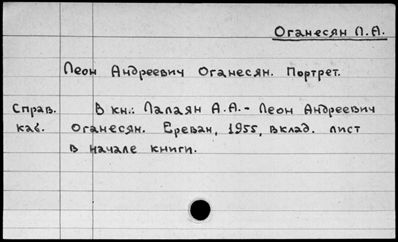 Оганесян Л.А.
Леон Андреевич Оганесян. Портрет.
Справ. В кн.: Лалаян А.А.- Леон Андреевич
каб. Оганесян. Ереван, 1955, вклад. лист
в начале книги.